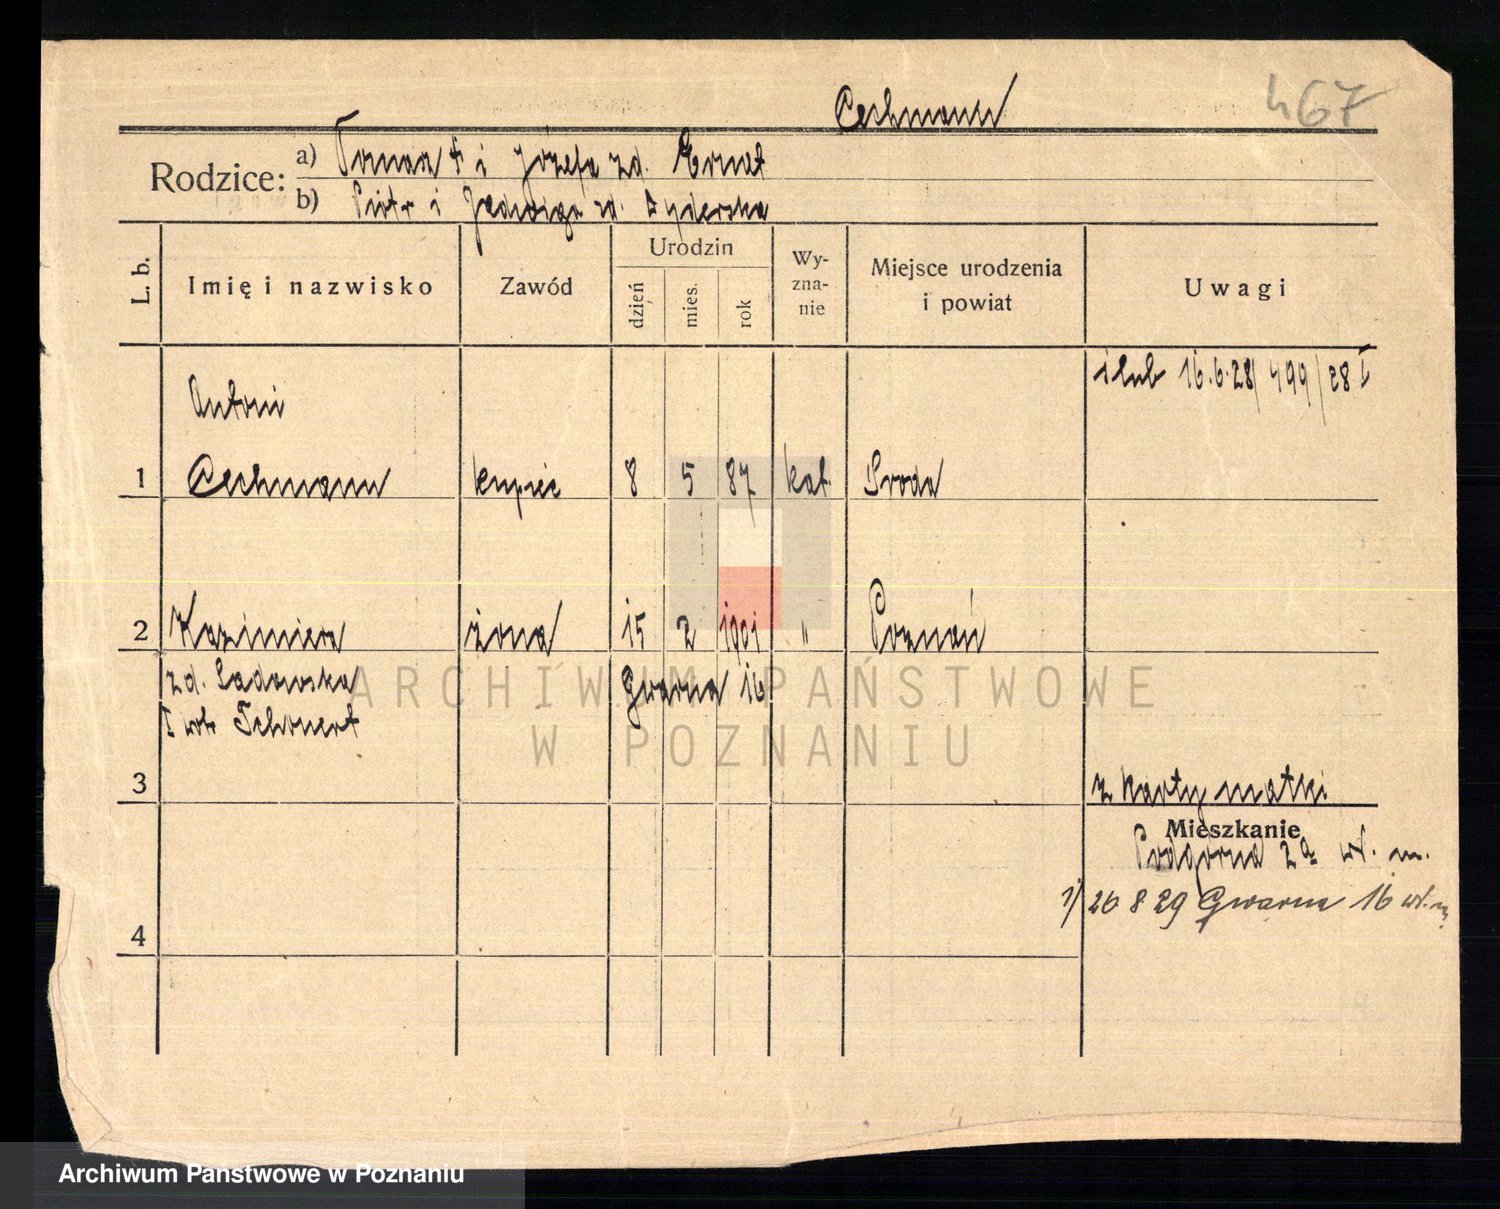 Cechmann
467
Rodzice: a) Tomasz † i Józefa zd. Ernat
b) Piotr i Jadwiga zd. Dyderska
L. b.
Imię i nazwisko
Zawód
Urodzin
dzień
mies.
rok
Wy-
zna-
nie
Miejsce urodzenia
i powiat
Uwagi
ślub 16.6.28/499/28 I
Antoni
1 Cechmann kupiec 8 5 87 kat. Środa
2 Kazimiera żona 15 2 1901 " Poznań
zd. Sadowska Gwarna 16
I wto Schonert
ARCHIWUM PAŃSTWOWE
W POZNANIU
3
z karty matki
Mieszkanie
Podgórna 2a wł. m.
1) 26 8 29 Gwarna 16 wł. m.
4
Archiwum Państwowe w Poznaniu